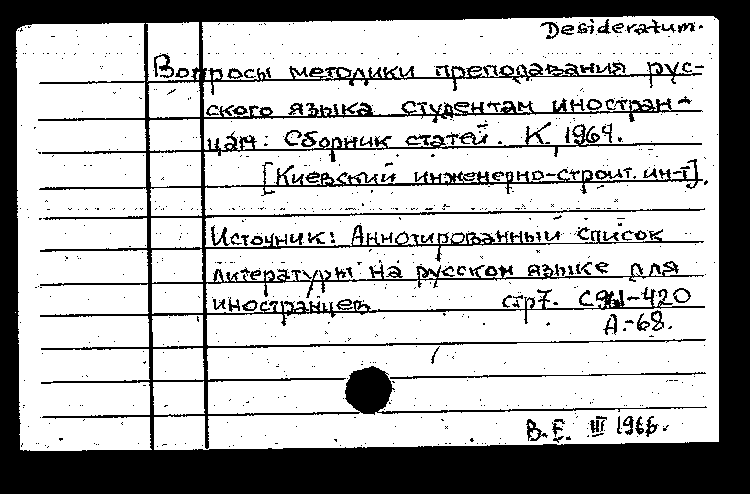 Desideratum.
Вопросы методики преподавания рус-
ского языка студентам иностран-
цам: Сборник статей. К, 1964.
[Киевский инженерно-строит. ин-т].
Источник: Аннотированный список
литературы на русском языке для
иностранцев стр7.
А-68.
В.Е. III 1966.